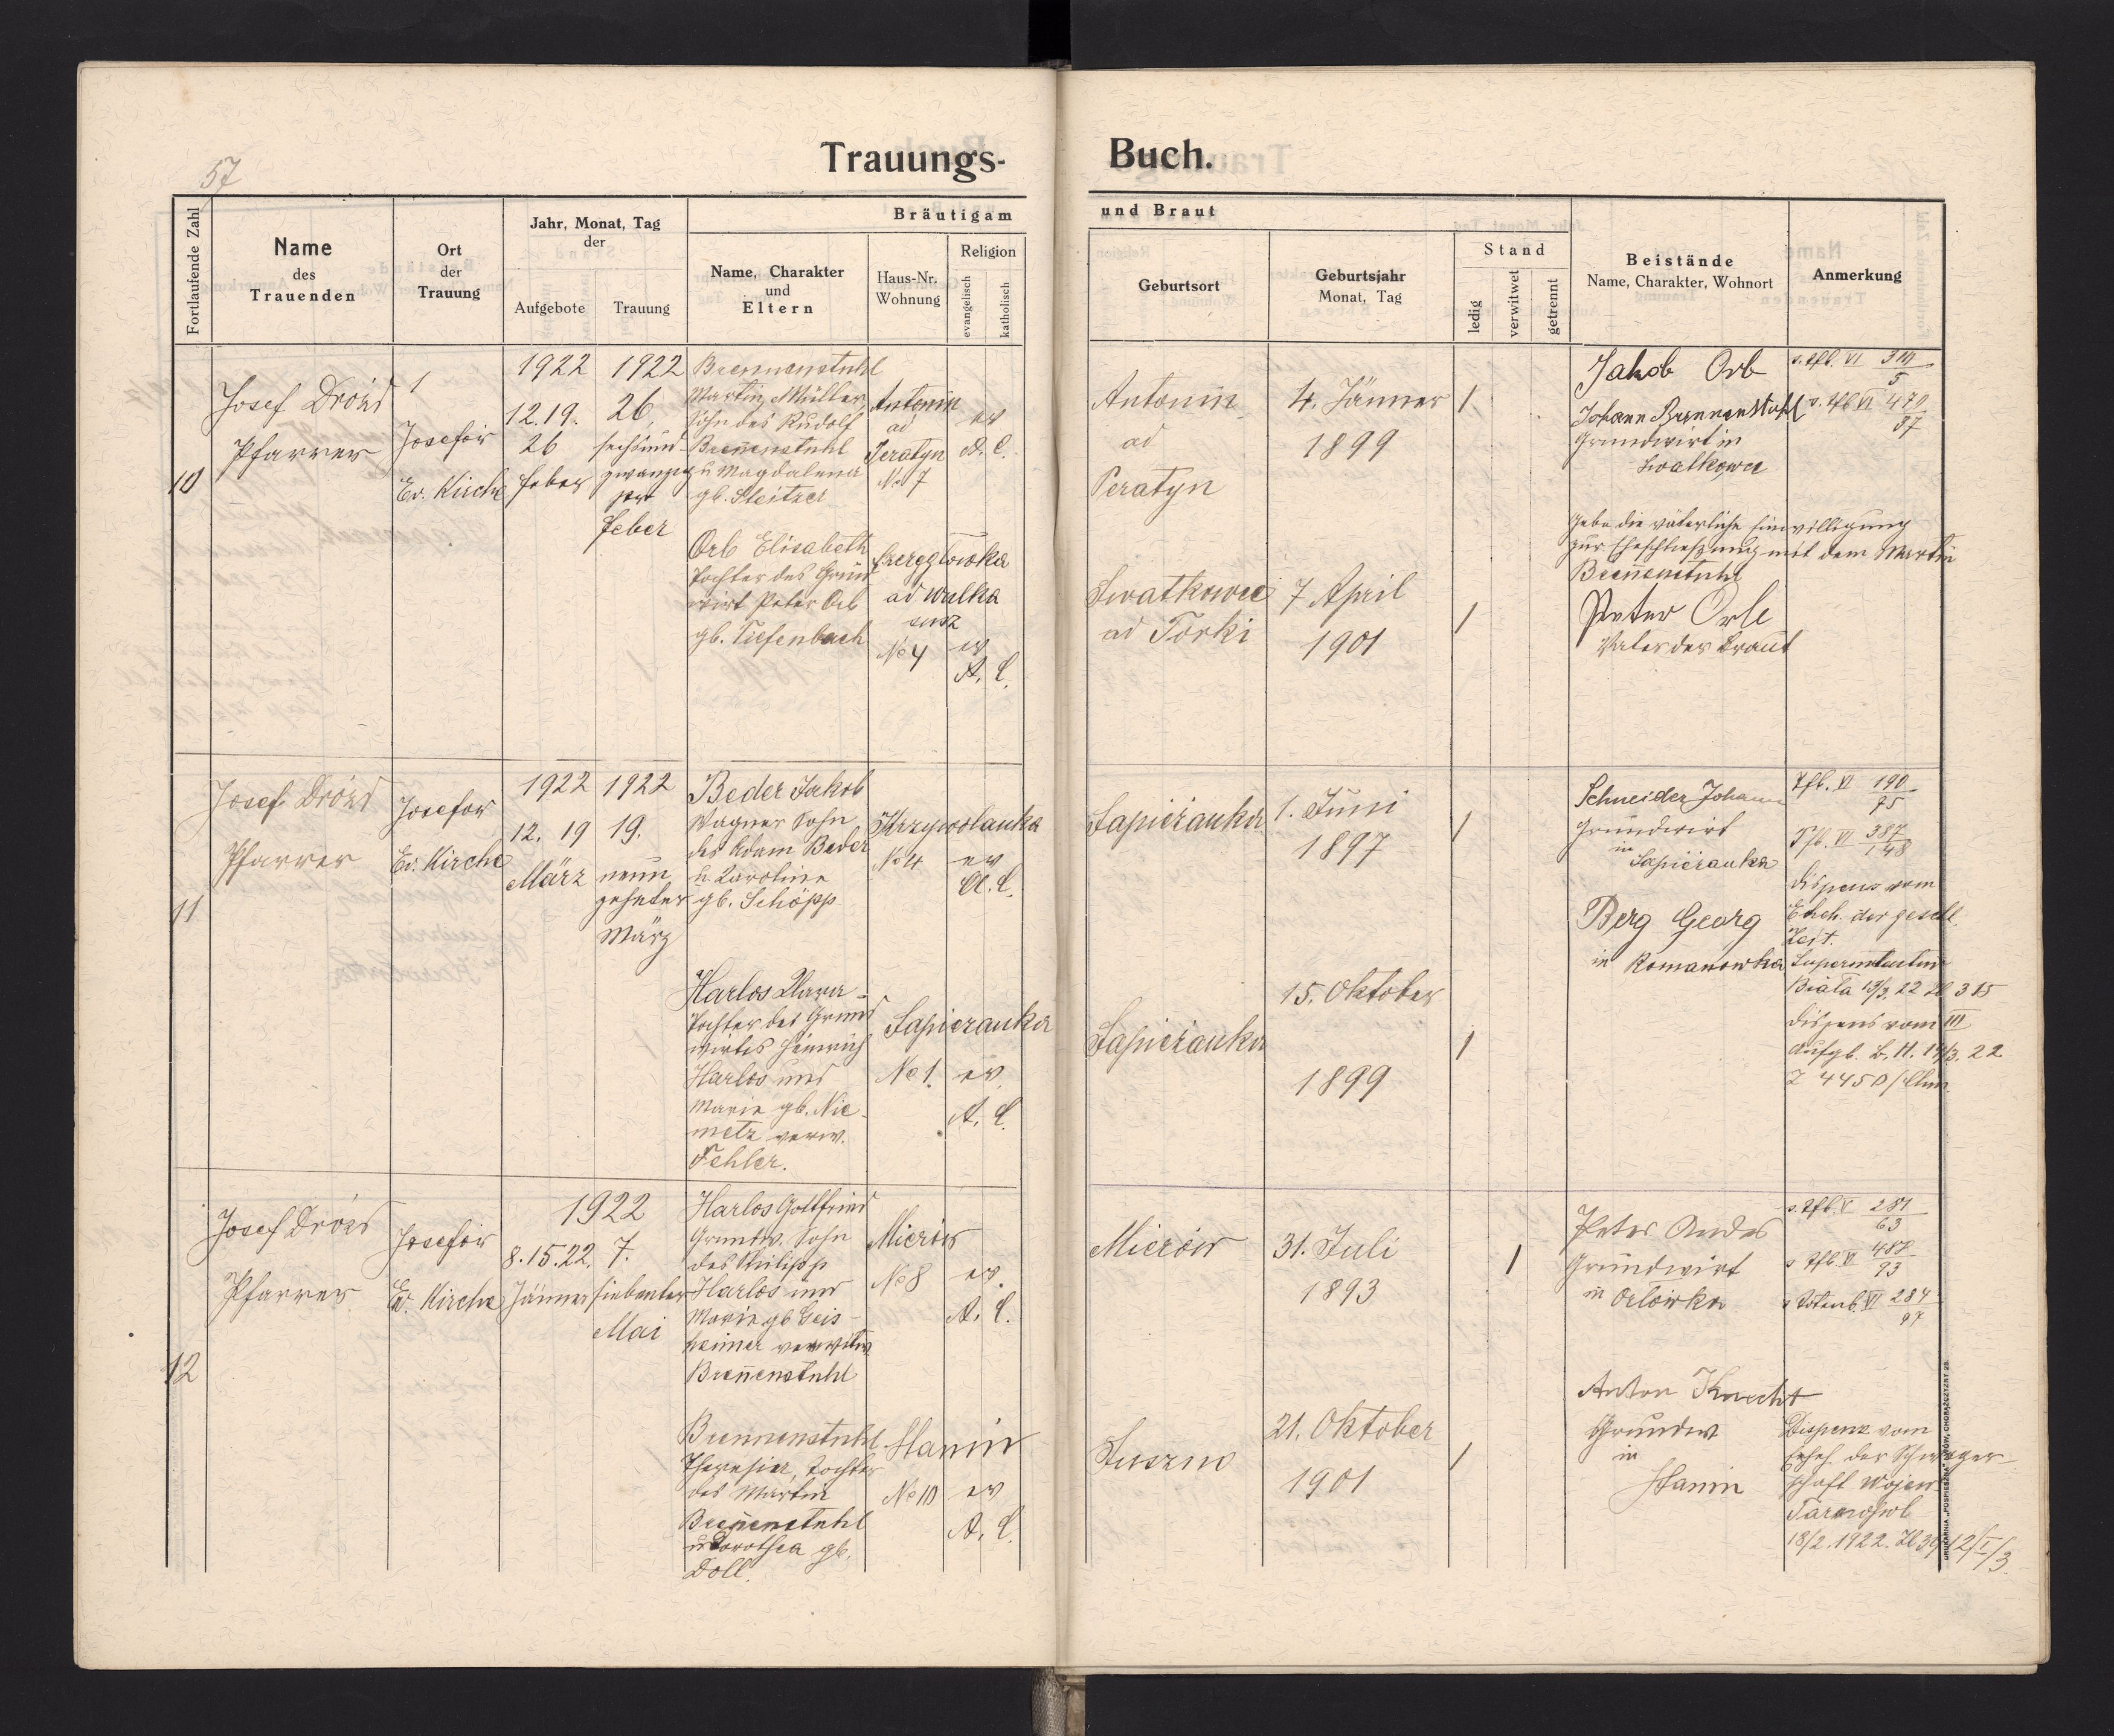 57
Trauungs-
Buch.
Fortlaufende Zahl
Name
des
Trauenden
Ort
der
Trauung
Jahr, Monat, Tag
der
Aufgebote
Trauung
Bräutigam
Name, Charakter
und
Eltern
Haus-Nr.
Wohnung
Religion
evangelisch
katholisch
und Braut
Geburtsort
Geburtsjahr
Monat, Tag
Stand
ledig
verwitwet
getrennt
Beistände
Name, Charakter, Wohnort
Anmerkung
10
Josef Dróżd
Pfarrer
Josefów
Ev. Kirche
1922
12. 19.
26
Feber
1922
26.
sechsund-
zwanzig
Feber
Brennenstuhl
Martin, Müller,
Sohn des Rudolf
Breñenstuhl
u Magdalena
gb. Steitzer
Antonin
ad
Peratyn
No 7
ev
A. C.
Antonin
ad
Peratyn
4. Jänner
1899
1
Jakob Orb
Johann Brennenstuhl
Grundwirt in
Swatkowce
s. Tfb. VI
5
s. Tfb VI 470
87
Orb Elisabeth
Tochter des Grund
wirt Peter Orb
gb. Tiefenbach
ad Wulka
susz
No 4
ev
A. C.
Swatkowce
ad Torki
7 April
1901
1
Gebe die väterliche Einwilligung
zur Eheschließung mit dem Martin
Breñenstuhl
Peter Orb
Vater der Braut
11
Josef Dróżd
Pfarrer
Josefow
Ev. Kirche
1922
12. 19
März
1922
19.
neun
zehnter
März
Beder Jakob
Wagner Sohn
des Adam Beder
u Karoline
gb. Schöpp
Krzywolanka
No 4
ev
A. C.
Sapieżanka
1. Juni
1897
1
Schneider Johann
Grundwirt
in
Sapieżanka
Berg Georg
in Romanowka
Tfb. VI 190
95
Tfb. VI 387
148
Dispens vom
Eheh. der geschl.
Zeit.
Superintentur
Biała 13/3. 22 Zl 315
Dispens vom III
Aufgb. B. H. 14/3. 22
Z 4450/
Harlos
Tochter des Grund
wirtes Heinrich
Harlos und
Marie gb. Nie-
metz verw.
Fehler.
Sapieżanka
No 1.
ev.
A. C.
Sapieżanka
15. Oktober
1899
1
12
Josef Dróżd
Pfarrer
Josefów
Ev. Kirche
1922
8. 15. 22.
Jänner
7.
siebenter
Mai
Harlos Gottfried
Grundw. Sohn
des Philipp
Harlos und
Marie gb Geis-
heimer verwitw
Breñenstuhl
Mierów
No 8
ev.
A. C.
Mierów
31. Juli
1893
1
Peter Andes
Grundwirt
in Orłówka
s. Tfb. V 281
63
s Tfb. VI 487
93
s Totenb. VI 284
97
Brennenstuhl
Theresia, Tochter
des Martin
Breñenstuhl
u Dorothea gb.
Doll.
Hanin
No 10
ev
A. C.
Suszno
21. Oktober
1901
1
Anton Knecht
Grundw
in
Hanin
Dispens vom
Eheh. der Schwager-
schaft Wojew
Tarnopol
18/2. 1922. Zl 3942/I/3.
DRUKARNIA „POSPIESZNA" LWÓW, CHORĄŻCZYZNY 29.